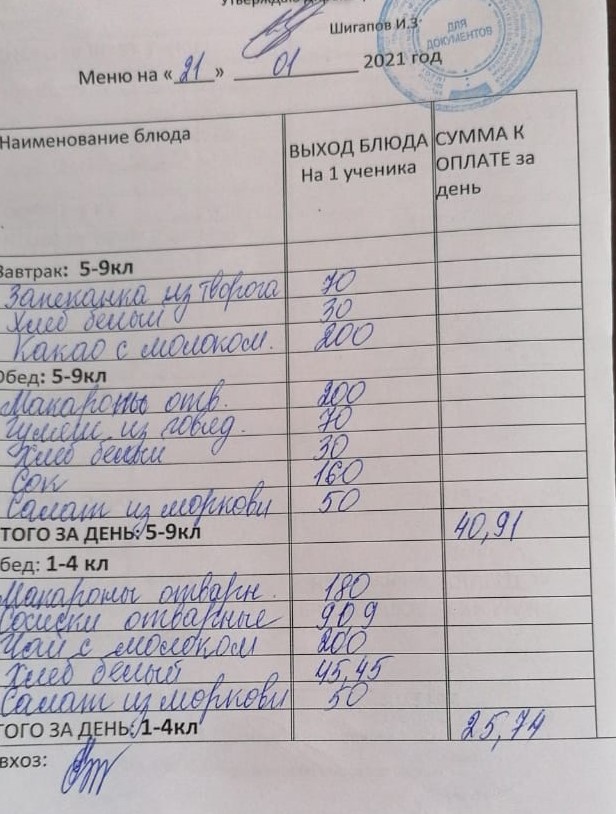 Утверждаю
Шигапов И.З
ДЛЯ ДОКУМЕНТОВ
Меню на «21» 01 2021 год
Наименование блюда ВЫХОД БЛЮДА На 1 ученика СУММА К ОПЛАТЕ за день
Завтрак: 5-9кл
Запеканка из творога 70
Хлеб белый 30
Какао с молоком. 200
Обед: 5-9кл
Макароны отв. 200
Гуляш из говяд. 70
Хлеб белый 30
Сок 160
Салат из моркови 50
ТОГО ЗА ДЕНЬ: 5-9кл 40,91
бед: 1-4 кл
Макароны отварн. 180
Сосиски отварные 90,9
Чай с молоком 200
Хлеб белый 45,45
Салат из моркови 50
ТОГО ЗА ДЕНЬ: 1-4кл 25,74
вхоз: